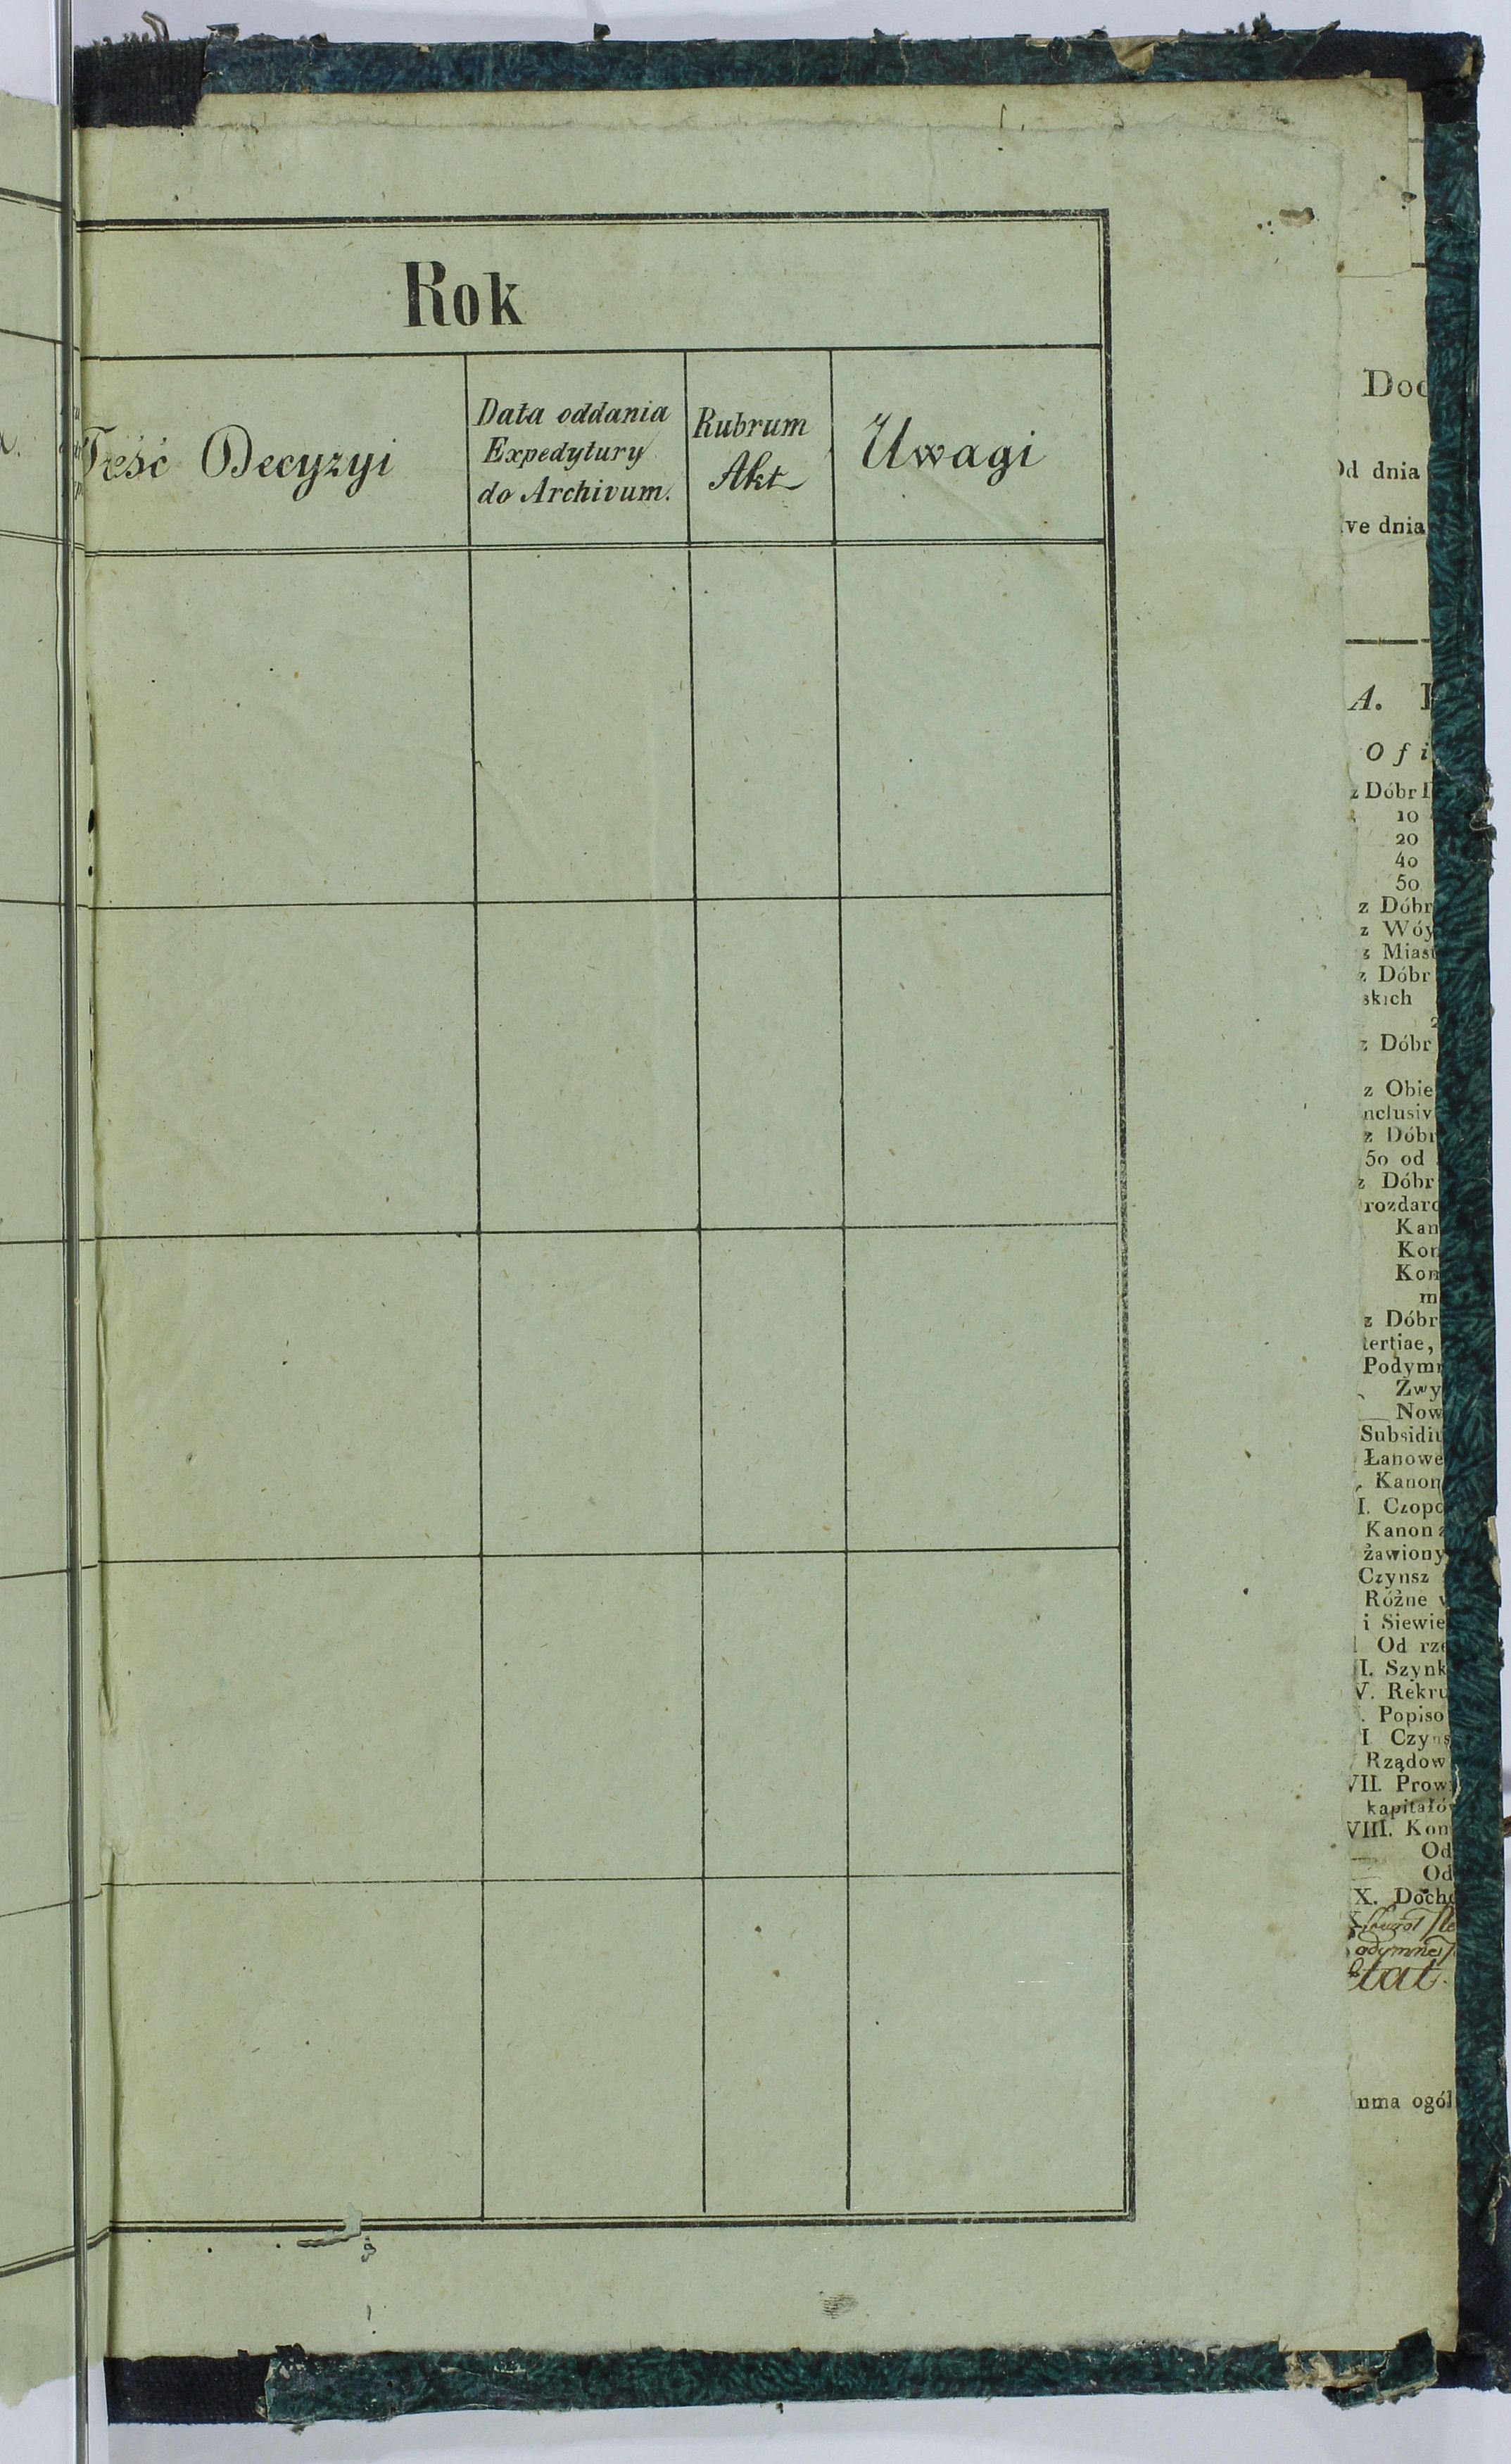 Rok
Treść Decyzyi
Data oddania
Expedytury
do Archivum.
Rubrum
Akt
Uwagi
Doc
Od dnia
ve dnia
A.
Ofi
z Dóbr
10
20
40
50
z Dóbr
z Wóy
z Miast
z Dóbr
skich
2
z Dóbr
z Obie
nclusiv
z Dóbr
50 od
z Dóbr
rozdaro
Kan
Kon
Kom
m
z Dóbr
tertiae,
Podymn
Zwy
Now
Subsidiu
Łanowe
Kanon
I. Czopo
Kanon z
żawiony
Czynsz
Różne
i Siewie
Od rze
I. Szynk
V. Rekru
. Popiso
I Czyns
Rządow
VII. Prow
kapitałów
VIII. Kon
Od
Od
X. Docho
odymnej
Etat.
mma ogól